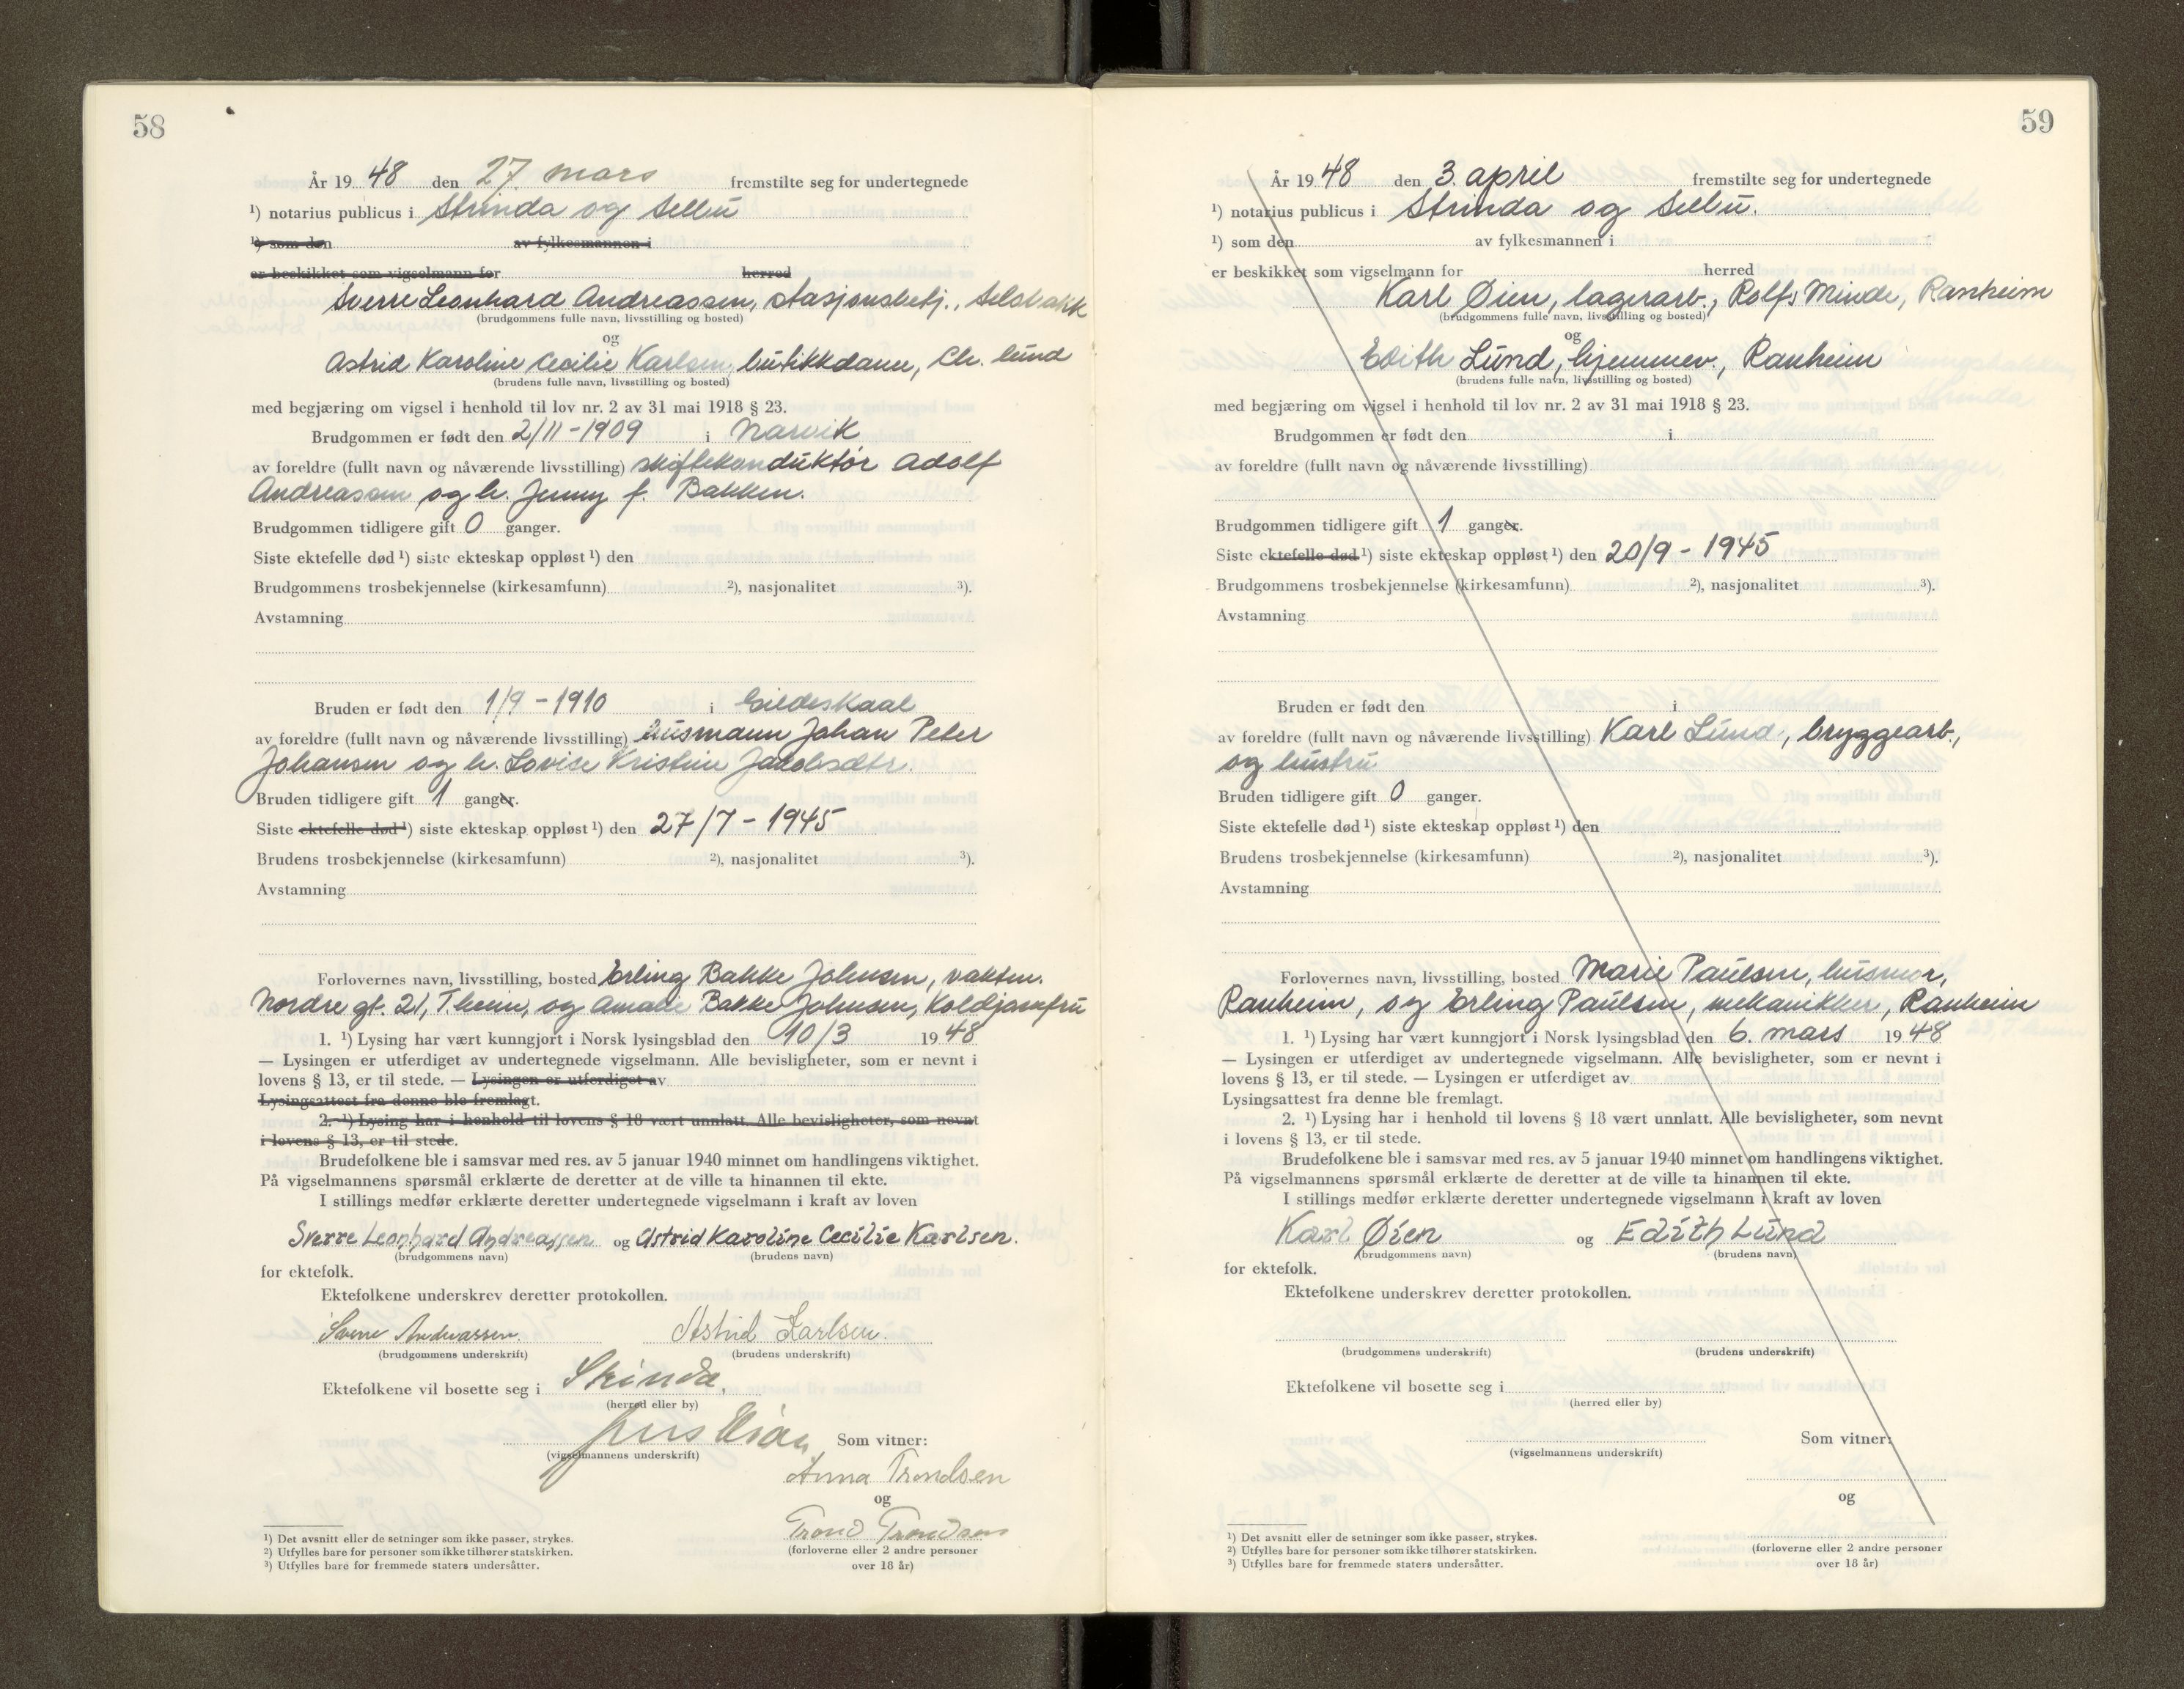 58
År 1948 den 27. mars fremstilte seg for undertegnede
¹) notarius publicus i Strinda og Selbu
¹) som den av fylkesmannen i
er beskikket som vigselmann for herred
Sverre Leonhard Andreassen, stasjonsbetj., Selsbakk
(brudgommens fulle navn, livsstilling og bosted)
og
Astrid Karoline Cecilie Karlsen, butikkdame, Ch. lund
(brudens fulle navn, livsstilling og bosted)
med begjæring om vigsel i henhold til lov nr. 2 av 31 mai 1918 § 23.
Brudgommen er født den 2/11-1909 i Narvik
av foreldre (fullt navn og nåværende livsstilling) skiftekonduktør Adolf
Andreassen og h. Jenny f. Bakken.
Brudgommen tidligere gift 0 ganger.
Siste ektefelle død ¹) siste ekteskap oppløst ¹) den
Brudgommens trosbekjennelse (kirkesamfunn) ²), nasjonalitet ³).
Avstamning
Bruden er født den 1/9-1910 i Gildeskaal
av foreldre (fullt navn og nåværende livsstilling) husmann Johan Peter
Johansen og h. Lovise Kristine Jakobsdtr.
Bruden tidligere gift 1 ganger.
Siste ektefelle død ¹) siste ekteskap oppløst ¹) den 27/7-1945
Brudens trosbekjennelse (kirkesamfunn) ²), nasjonalitet ³).
Avstamning
Forlovernes navn, livsstilling, bosted Erling Bakke Johnsen, vaktm.
Nordre gt. 21, T.heim, og Amalie Bakke Johnsen, Koldjomfru
1. ¹) Lysing har vært kunngjort i Norsk lysingsblad den 10/3 1948
— Lysingen er utferdiget av undertegnede vigselmann. Alle bevisligheter, som er nevnt i
lovens § 13, er til stede. — Lysingen er utferdiget av
Lysingsattest fra denne ble fremlagt.
2. ¹) Lysing har i henhold til lovens § 18 vært unnlatt. Alle bevisligheter, som nevnt
i lovens § 13, er til stede.
Brudefolkene ble i samsvar med res. av 5 januar 1940 minnet om handlingens viktighet.
På vigselmannens spørsmål erklærte de deretter at de ville ta hinannen til ekte.
I stillings medfør erklærte deretter undertegnede vigselmann i kraft av loven
Sverre Leonhard Andreassen og Astrid Karoline Cecilie Karlsen.
(brudgommens navn) (brudens navn)
for ektefolk.
Ektefolkene underskrev deretter protokollen.
Sverre Andreassen. Astrid Karlsen.
(brudgommens underskrift) (brudens underskrift)
Ektefolkene vil bosette seg i Strinda,
(herred eller by)
Som vitner:
(vigselmannens underskrift)
Anna Trondsen
og
Trond Trondsen
(forloverne eller 2 andre personer
over 18 år)
¹) Det avsnitt eller de setninger som ikke passer, strykes.
²) Utfylles bare for personer som ikke tilhører statskirken.
³) Utfylles bare for fremmede staters undersåtter.
59
År 1948 den 3. april fremstilte seg for undertegnede
¹) notarius publicus i Strinda og Selbu.
¹) som den av fylkesmannen i
er beskikket som vigselmann for herred
Karl Øien, lagerarb., Rolfs Minde, Ranheim
(brudgommens fulle navn, livsstilling og bosted)
og
Edith Lund, hjemmev., Ranheim
(brudens fulle navn, livsstilling og bosted)
med begjæring om vigsel i henhold til lov nr. 2 av 31 mai 1918 § 23.
Brudgommen er født den i
av foreldre (fullt navn og nåværende livsstilling)
Brudgommen tidligere gift 1 ganger.
Siste ektefelle død ¹) siste ekteskap oppløst ¹) den 20/9-1945
Brudgommens trosbekjennelse (kirkesamfunn) ²), nasjonalitet ³).
Avstamning
Bruden er født den i
av foreldre (fullt navn og nåværende livsstilling) Karl Lund, bryggearb.,
og hustru
Bruden tidligere gift 0 ganger.
Siste ektefelle død ¹) siste ekteskap oppløst ¹) den
Brudens trosbekjennelse (kirkesamfunn) ²), nasjonalitet ³).
Avstamning
Forlovernes navn, livsstilling, bosted Marie Paulsen, husmor,
Ranheim, og Erling Paulsen, mekanikker, Ranheim
1. ¹) Lysing har vært kunngjort i Norsk lysingsblad den 6. mars 1948
— Lysingen er utferdiget av undertegnede vigselmann. Alle bevisligheter, som er nevnt i
lovens § 13, er til stede. — Lysingen er utferdiget av
Lysingsattest fra denne ble fremlagt.
2. ¹) Lysing har i henhold til lovens § 18 vært unnlatt. Alle bevisligheter, som nevnt
i lovens § 13, er til stede.
Brudefolkene ble i samsvar med res. av 5 januar 1940 minnet om handlingens viktighet.
På vigselmannens spørsmål erklærte de deretter at de ville ta hinannen til ekte.
I stillings medfør erklærte deretter undertegnede vigselmann i kraft av loven
Karl Øien og Edith Lund
(brudgommens navn) (brudens navn)
for ektefolk.
Ektefolkene underskrev deretter protokollen.
(brudgommens underskrift) (brudens underskrift)
Ektefolkene vil bosette seg i
(herred eller by)
Som vitner:
(vigselmannens underskrift)
og
(forloverne eller 2 andre personer
over 18 år)
¹) Det avsnitt eller de setninger som ikke passer, strykes.
²) Utfylles bare for personer som ikke tilhører statskirken.
³) Utfylles bare for fremmede staters undersåtter.